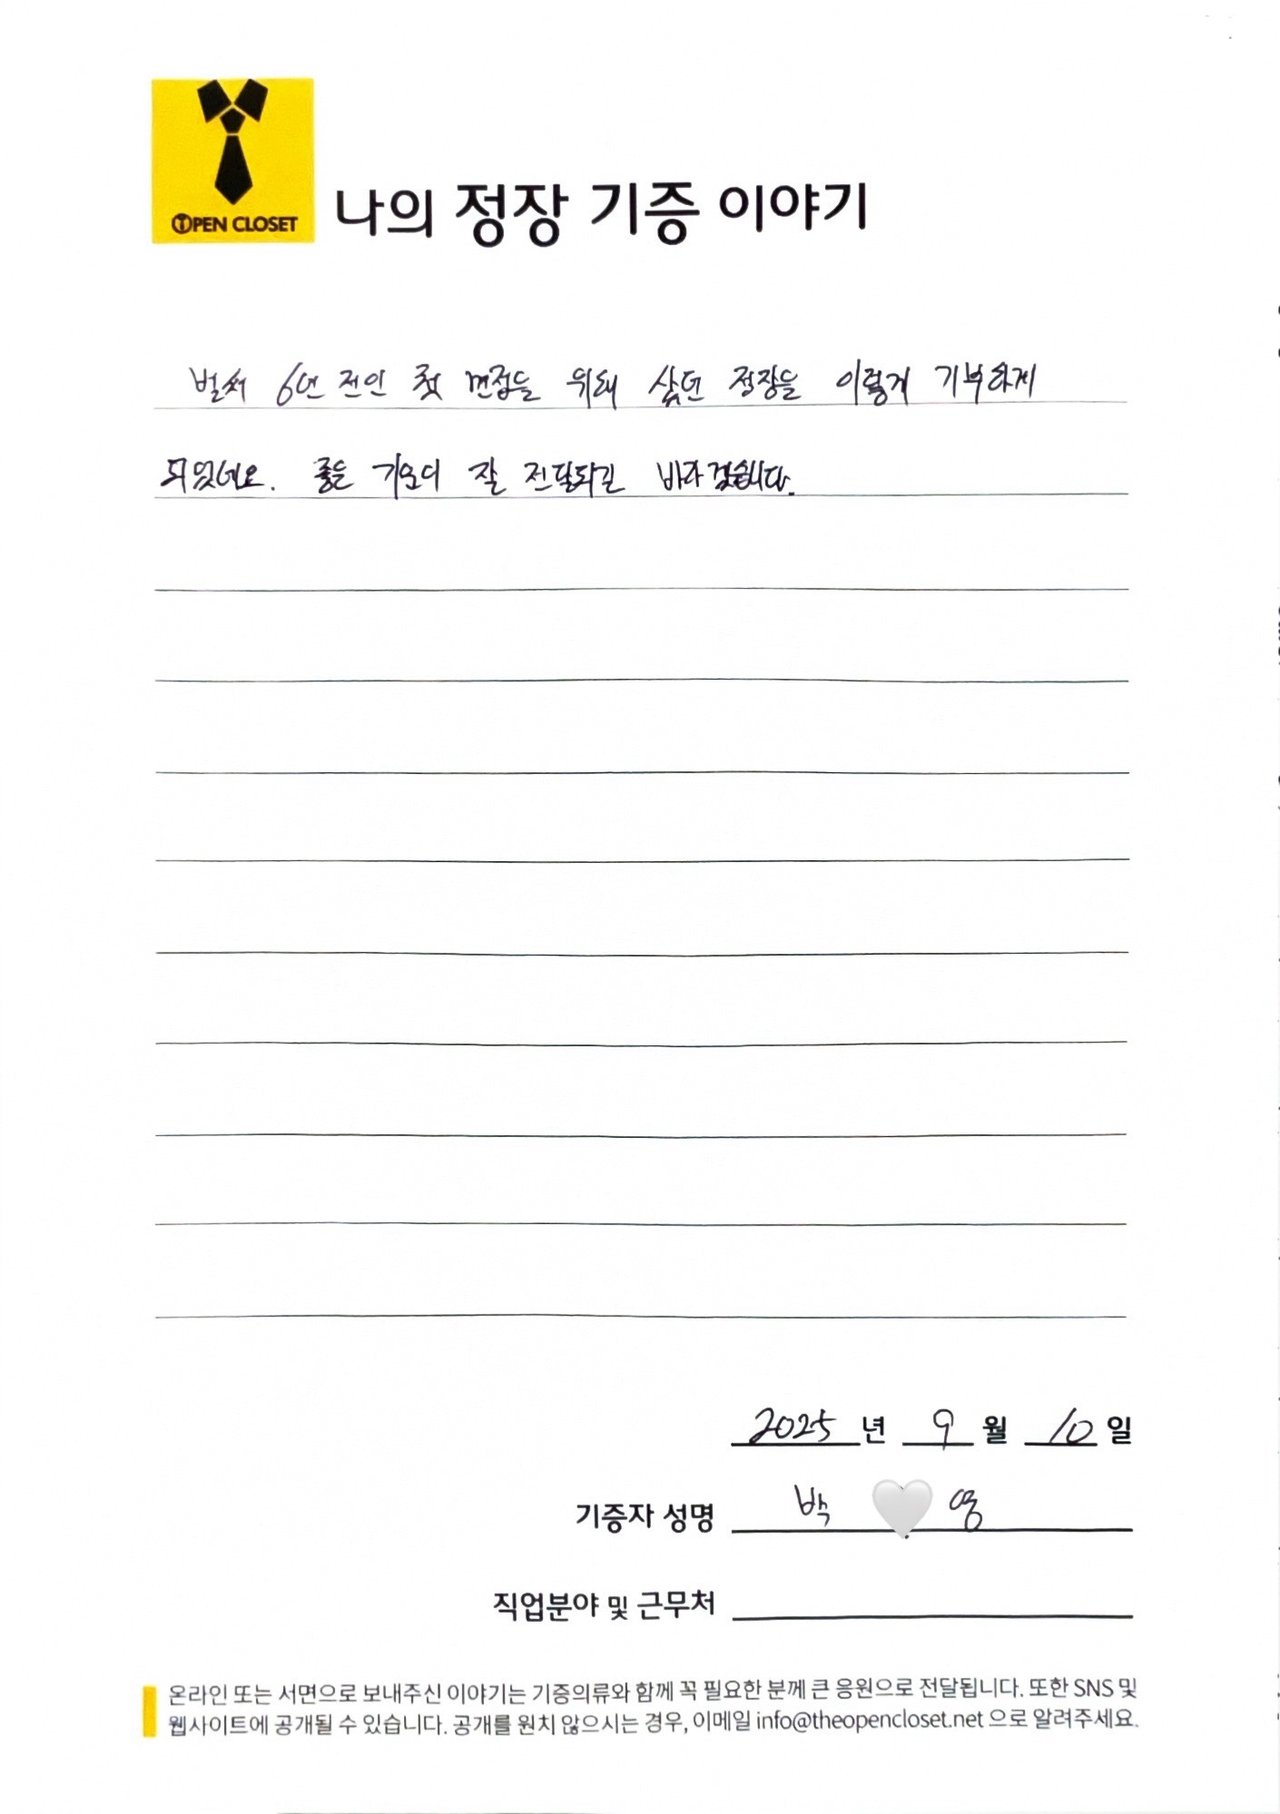 OPEN CLOSET
나의 정장 기증 이야기
벌써 6년 전인 첫 면접을 위해 샀던 정장을 이렇게 기부하게
되었네요. 좋은 기운이 잘 전달되길 바라겠습니다.
2025 년 9 월 10 일
기증자 성명 박 🤍 영
직업분야 및 근무처
온라인 또는 서면으로 보내주신 이야기는 기증의류와 함께 꼭 필요한 분께 큰 응원으로 전달됩니다. 또한 SNS 및
웹사이트에 공개될 수 있습니다. 공개를 원치 않으시는 경우, 이메일 info@theopencloset.net 으로 알려주세요.